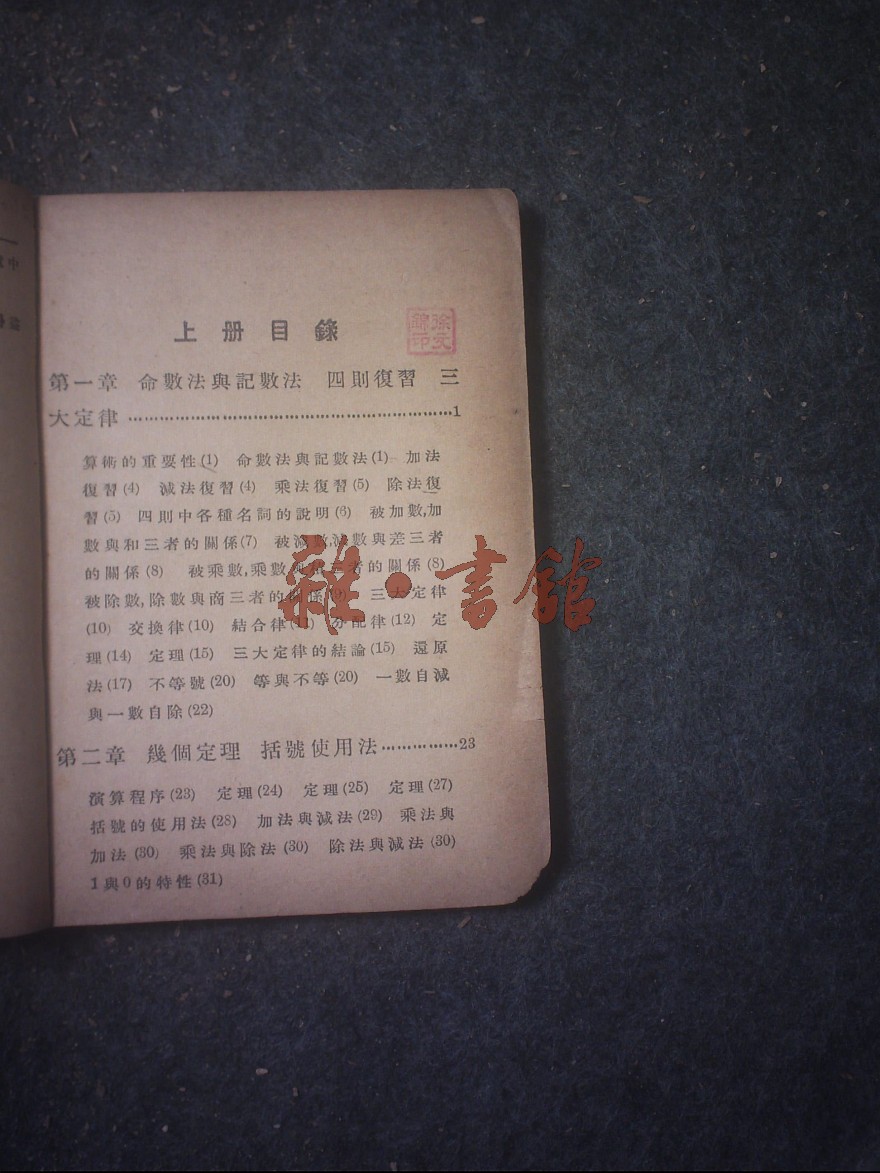 上册目錄
徐文錦印
第一章 命數法與記數法 四則復習 三
大定律……………………………………………1
算術的重要性(1) 命數法與記數法(1) 加法
復習(4) 減法復習(4) 乘法復習(5) 除法復
習(5) 四則中各種名詞的說明(6) 被加數,加
數與和三者的關係(7) 被減數,減數與差三者
的關係(8) 被乘數,乘數與積三者的關係(8)
被除數,除數與商三者的關係(9) 三大定律
(10) 交換律(10) 結合律(11) 分配律(12) 定
理(14) 定理(15) 三大定律的結論(15) 還原
法(17) 不等號(20) 等與不等(20) 一數自減
與一數自除(22)
第二章 幾個定理 括號使用法……………23
演算程序(23) 定理(24) 定理(25) 定理(27)
括號的使用法(28) 加法與減法(29) 乘法與
加法(30) 乘法與除法(30) 除法與減法(30)
1與0的特性(31)
雜·書館